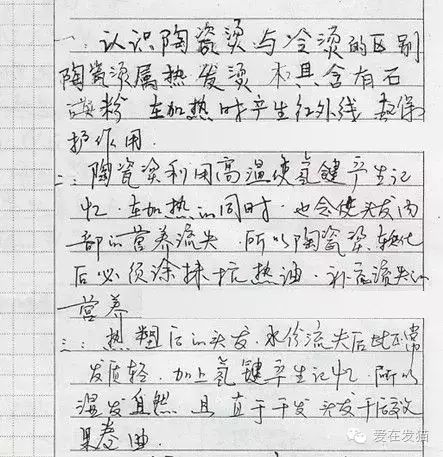 一:认识陶瓷烫与冷烫的区别
陶瓷烫属热发烫 木具含有石
英粉 在加热时产生红外线 起保
护作用.
二:陶瓷烫利用高温使氢键产生记
忆.在加热的同时.也会使头发内
部的营养流失.所以陶瓷烫软化
后必须涂抹抗热油.补充流失的
营养
三:热塑后的头发.水份流失后比正常
发质轻.加上氢键产生记忆.所以
湿发自然 且直于干发 头发干后效
果卷曲.
爱在发猫